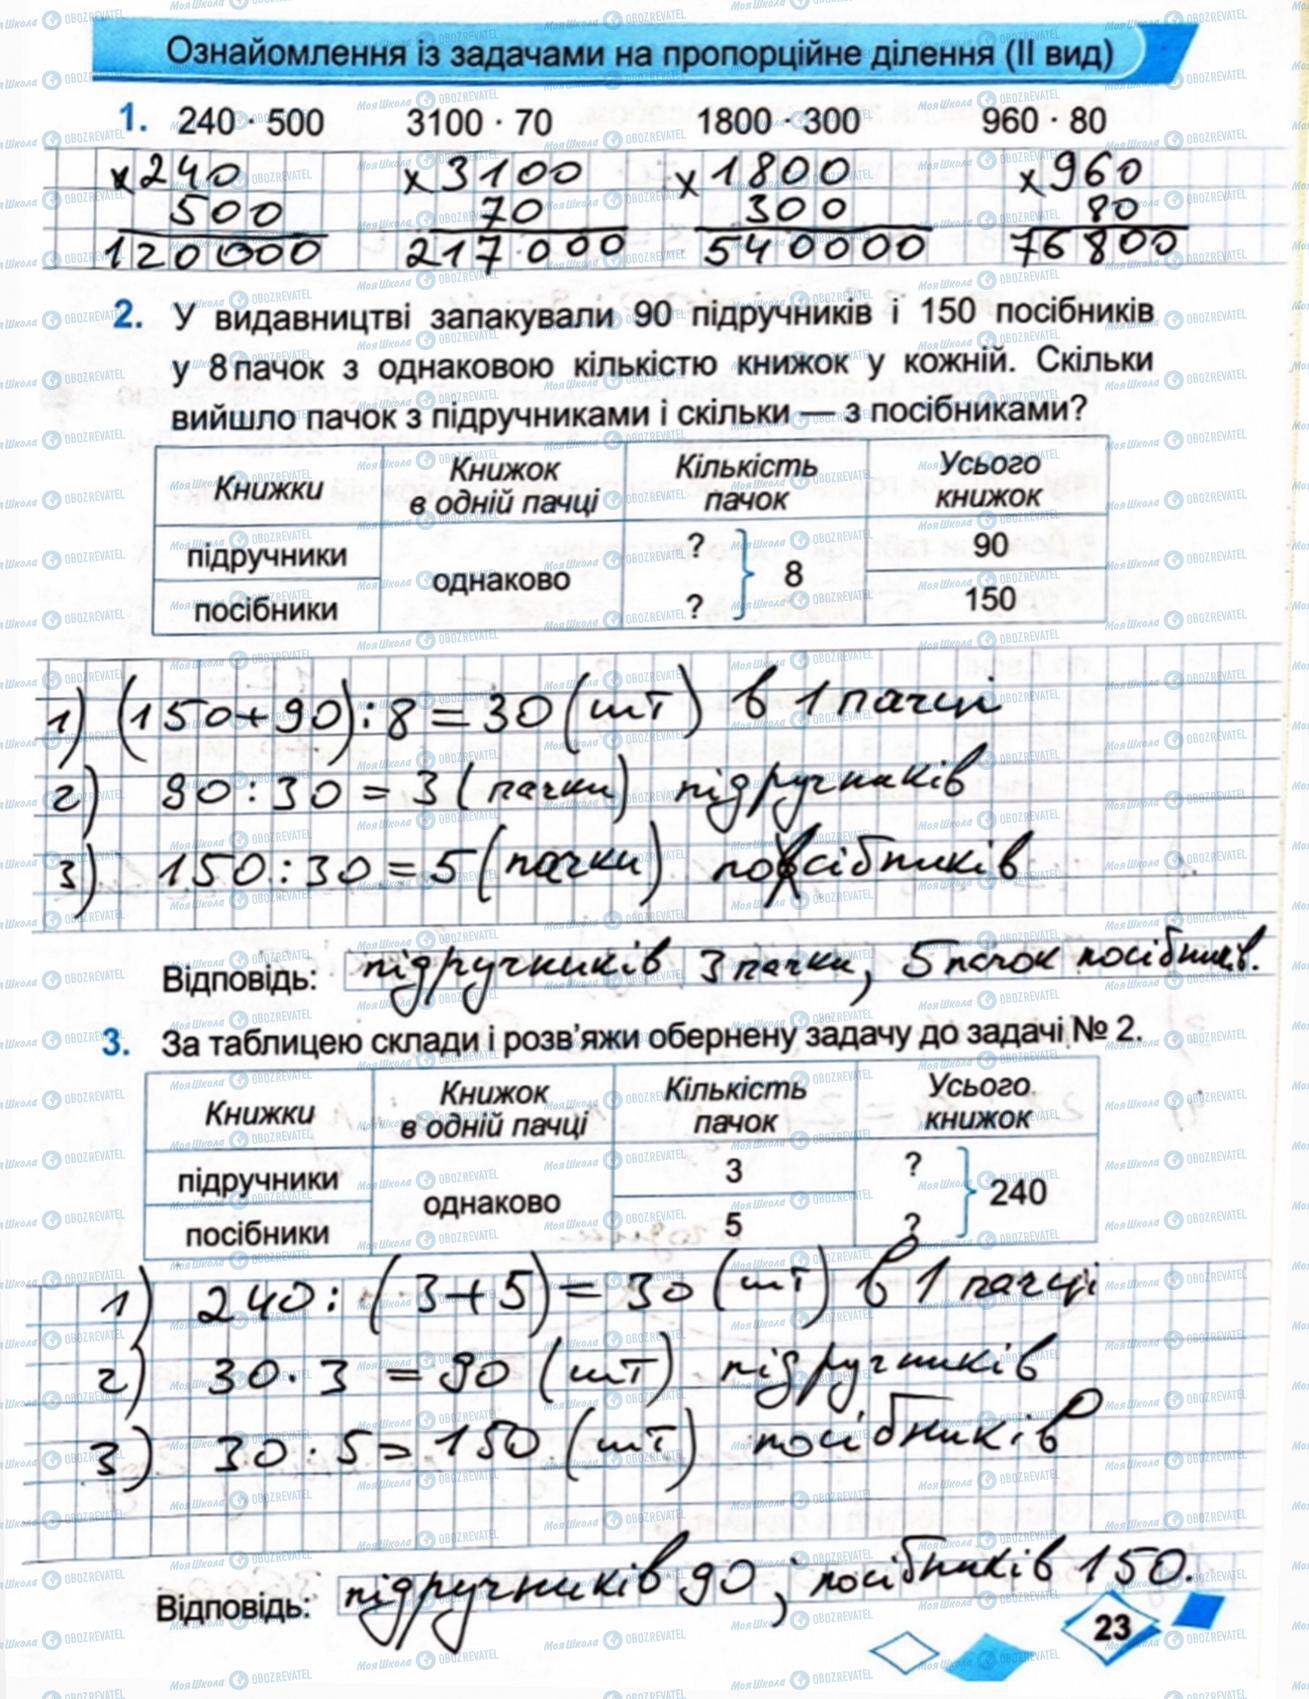 Ознайомлення із задачами на пропорційне ділення (ІІ вид)
1. 240 · 500 3100 · 70 1800 · 300 960 · 80
х 240 х 3100 х 1800 х 960
500 70 300 80
120000 217.000 540000 76800
2. У видавництві запакували 90 підручників і 150 посібників
у 8 пачок з однаковою кількістю книжок у кожній. Скільки
вийшло пачок з підручниками і скільки — з посібниками?
Книжки Книжок в одній пачці Кількість пачок Усього книжок
підручники однаково ? 8 90
посібники ? 150
1) (150+90):8=30 (шт) в 1 пачці
2) 90:30=3 (пачки) підручників
3) 150:30=5 (пачки) посібників
Відповідь: підручників 3 пачки, 5 пачок посібників.
3. За таблицею склади і розв'яжи обернену задачу до задачі № 2.
Книжки Книжок в одній пачці Кількість пачок Усього книжок
підручники однаково 3 ? 240
посібники 5 ?
1) 240:(3+5)=30 (шт) в 1 пачці
2) 30·3=90 (шт) підручників
3) 30:5=150 (шт) посібників
Відповідь: підручників 90; посібників 150.
23
МояШкола OBOZREVATEL